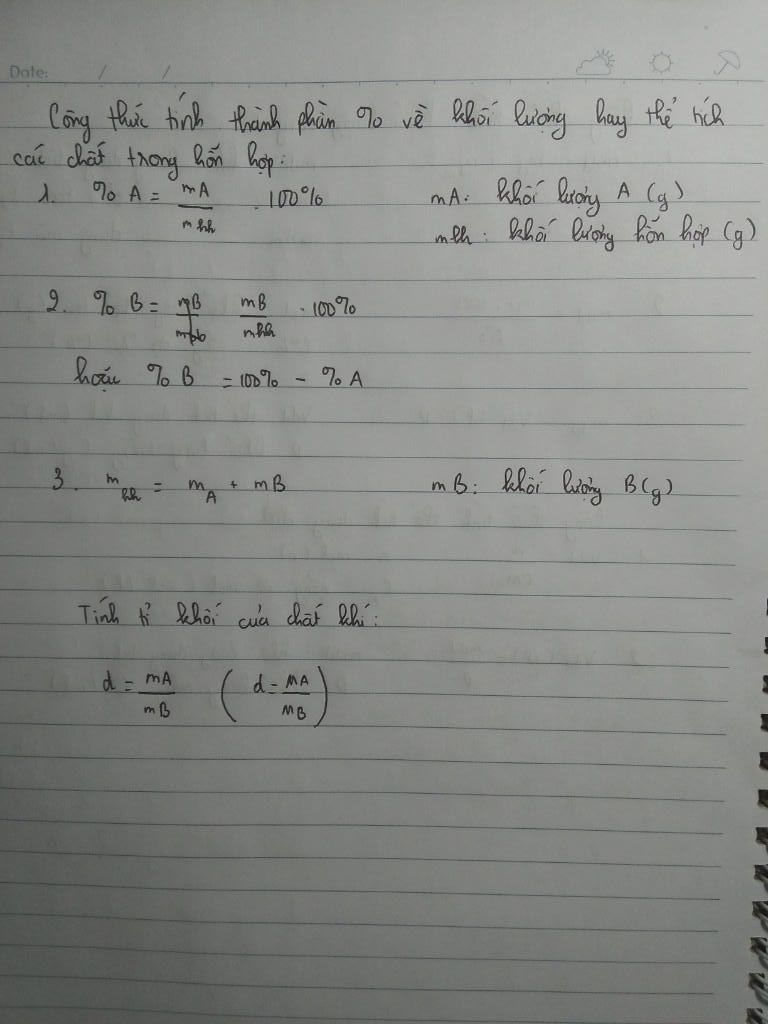 Date: / /
Công thức tính thành phần % về khối lượng hay thể tích
các chất trong hỗn hợp:
1. % A = mA / mhh . 100% mA: khối lượng A (g)
mhh: khối lượng hỗn hợp (g)
2. % B = mB / mhh . 100%
hoặc % B = 100% - % A
3. mhh = mA + mB mB: khối lượng B(g)
Tính tỉ khối của chất khí:
d = mA / mB ( d = MA / MB )